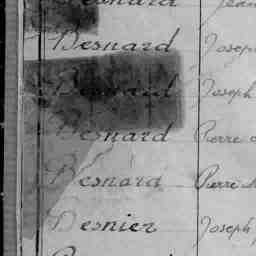 Besnard Jean
Besnard Joseph
Besnard Joseph
Besnard Pierre
Besnard Pierre M
Besnier Joseph